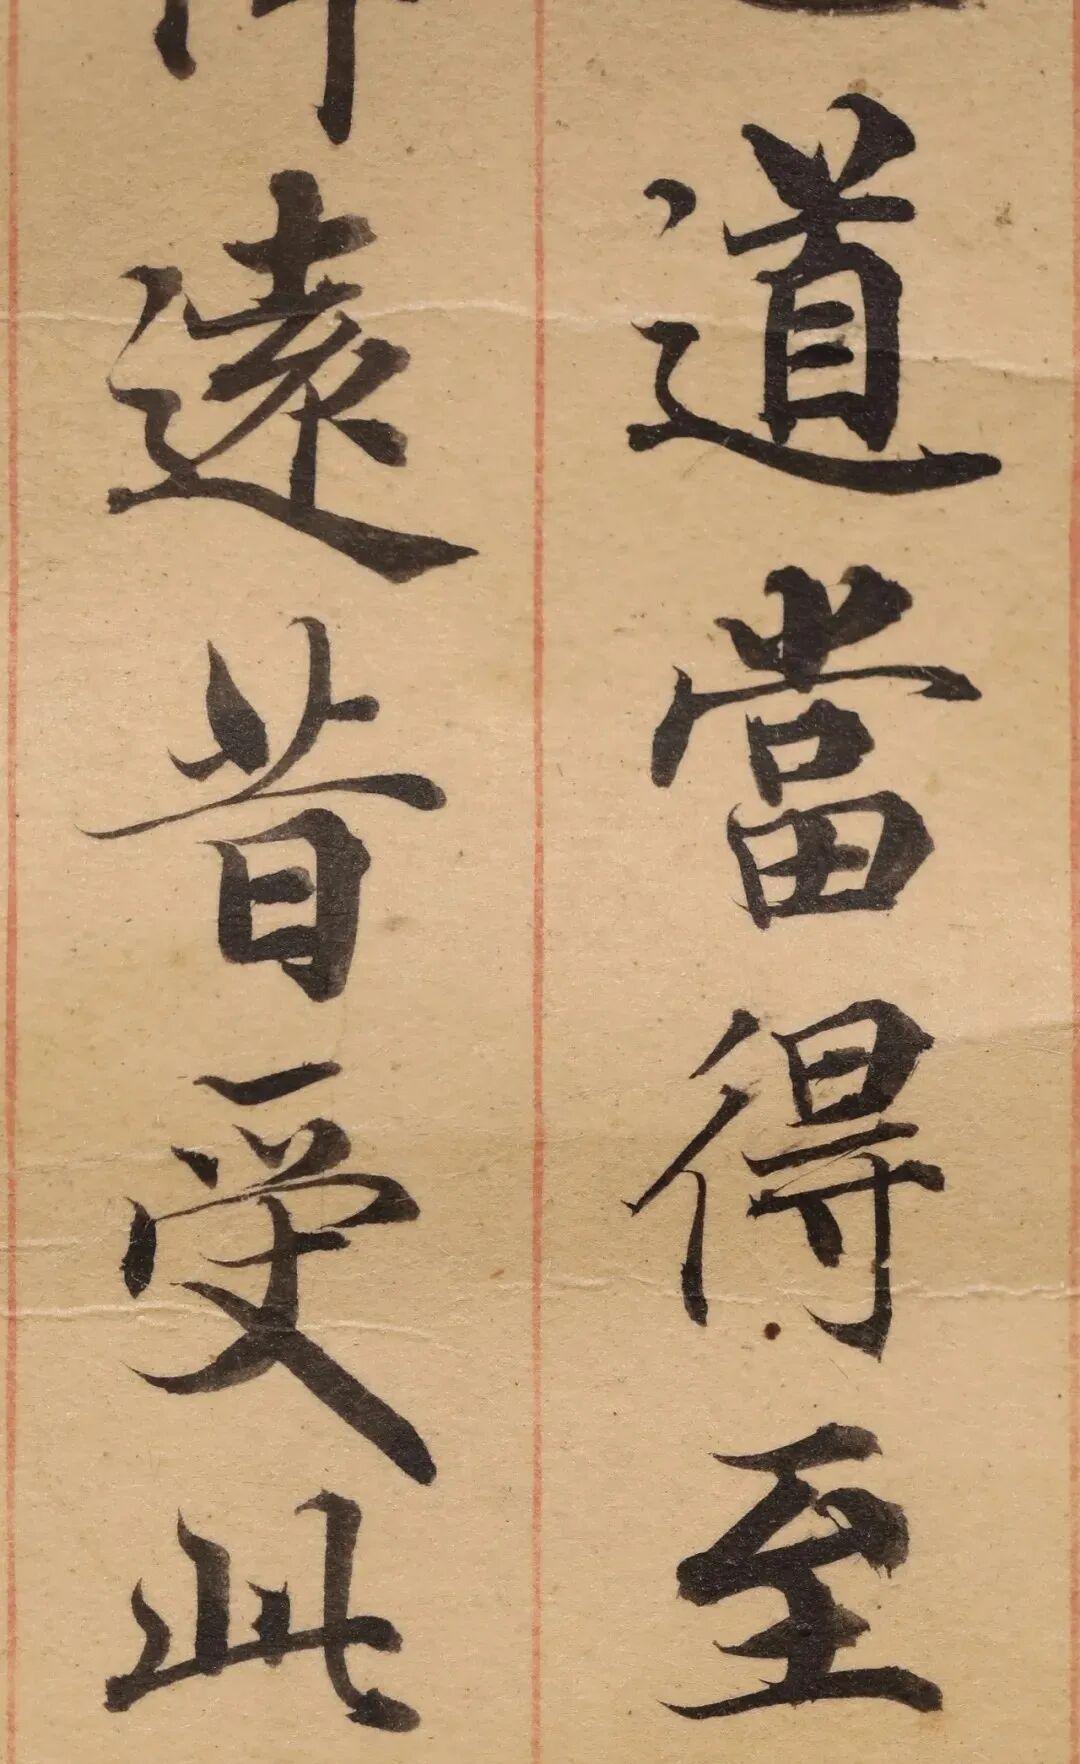 道當得至
遠昔受此